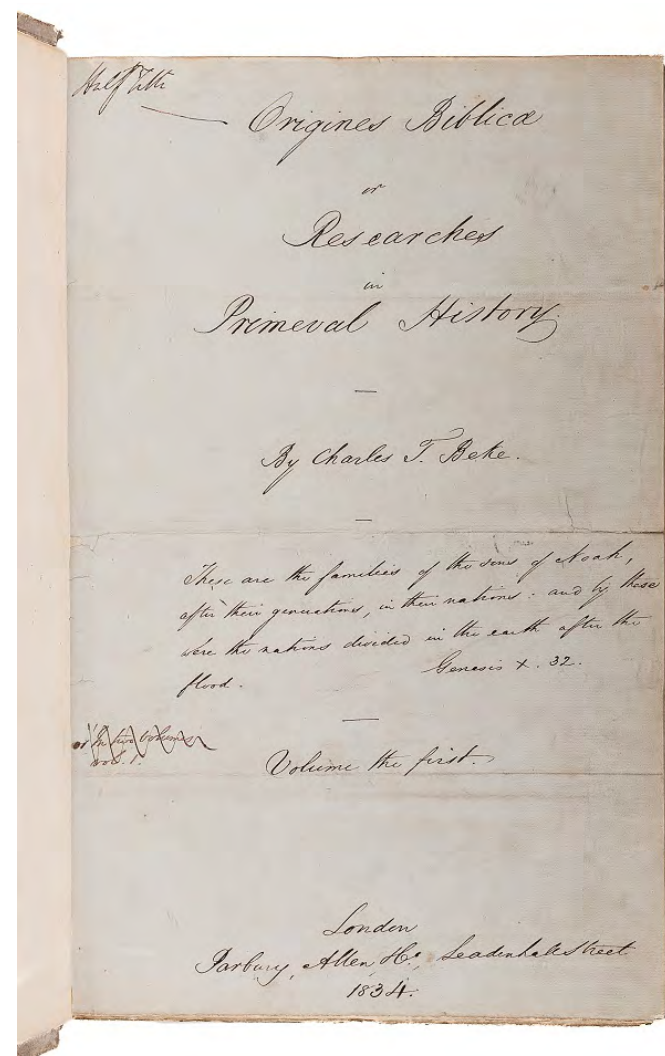 Half Title
Origines Biblicæ
or
Researches
in
Primeval History.
By Charles T. Beke.
These are the families of the sons of Noah,
after their generations, in their nations: and by these
were the nations divided in the earth after the
flood. Genesis X. 32.
or In two volumes
vol. 1.
Volume the first.
London
Parbury, Allen & Co., Leadenhall Street
1834.